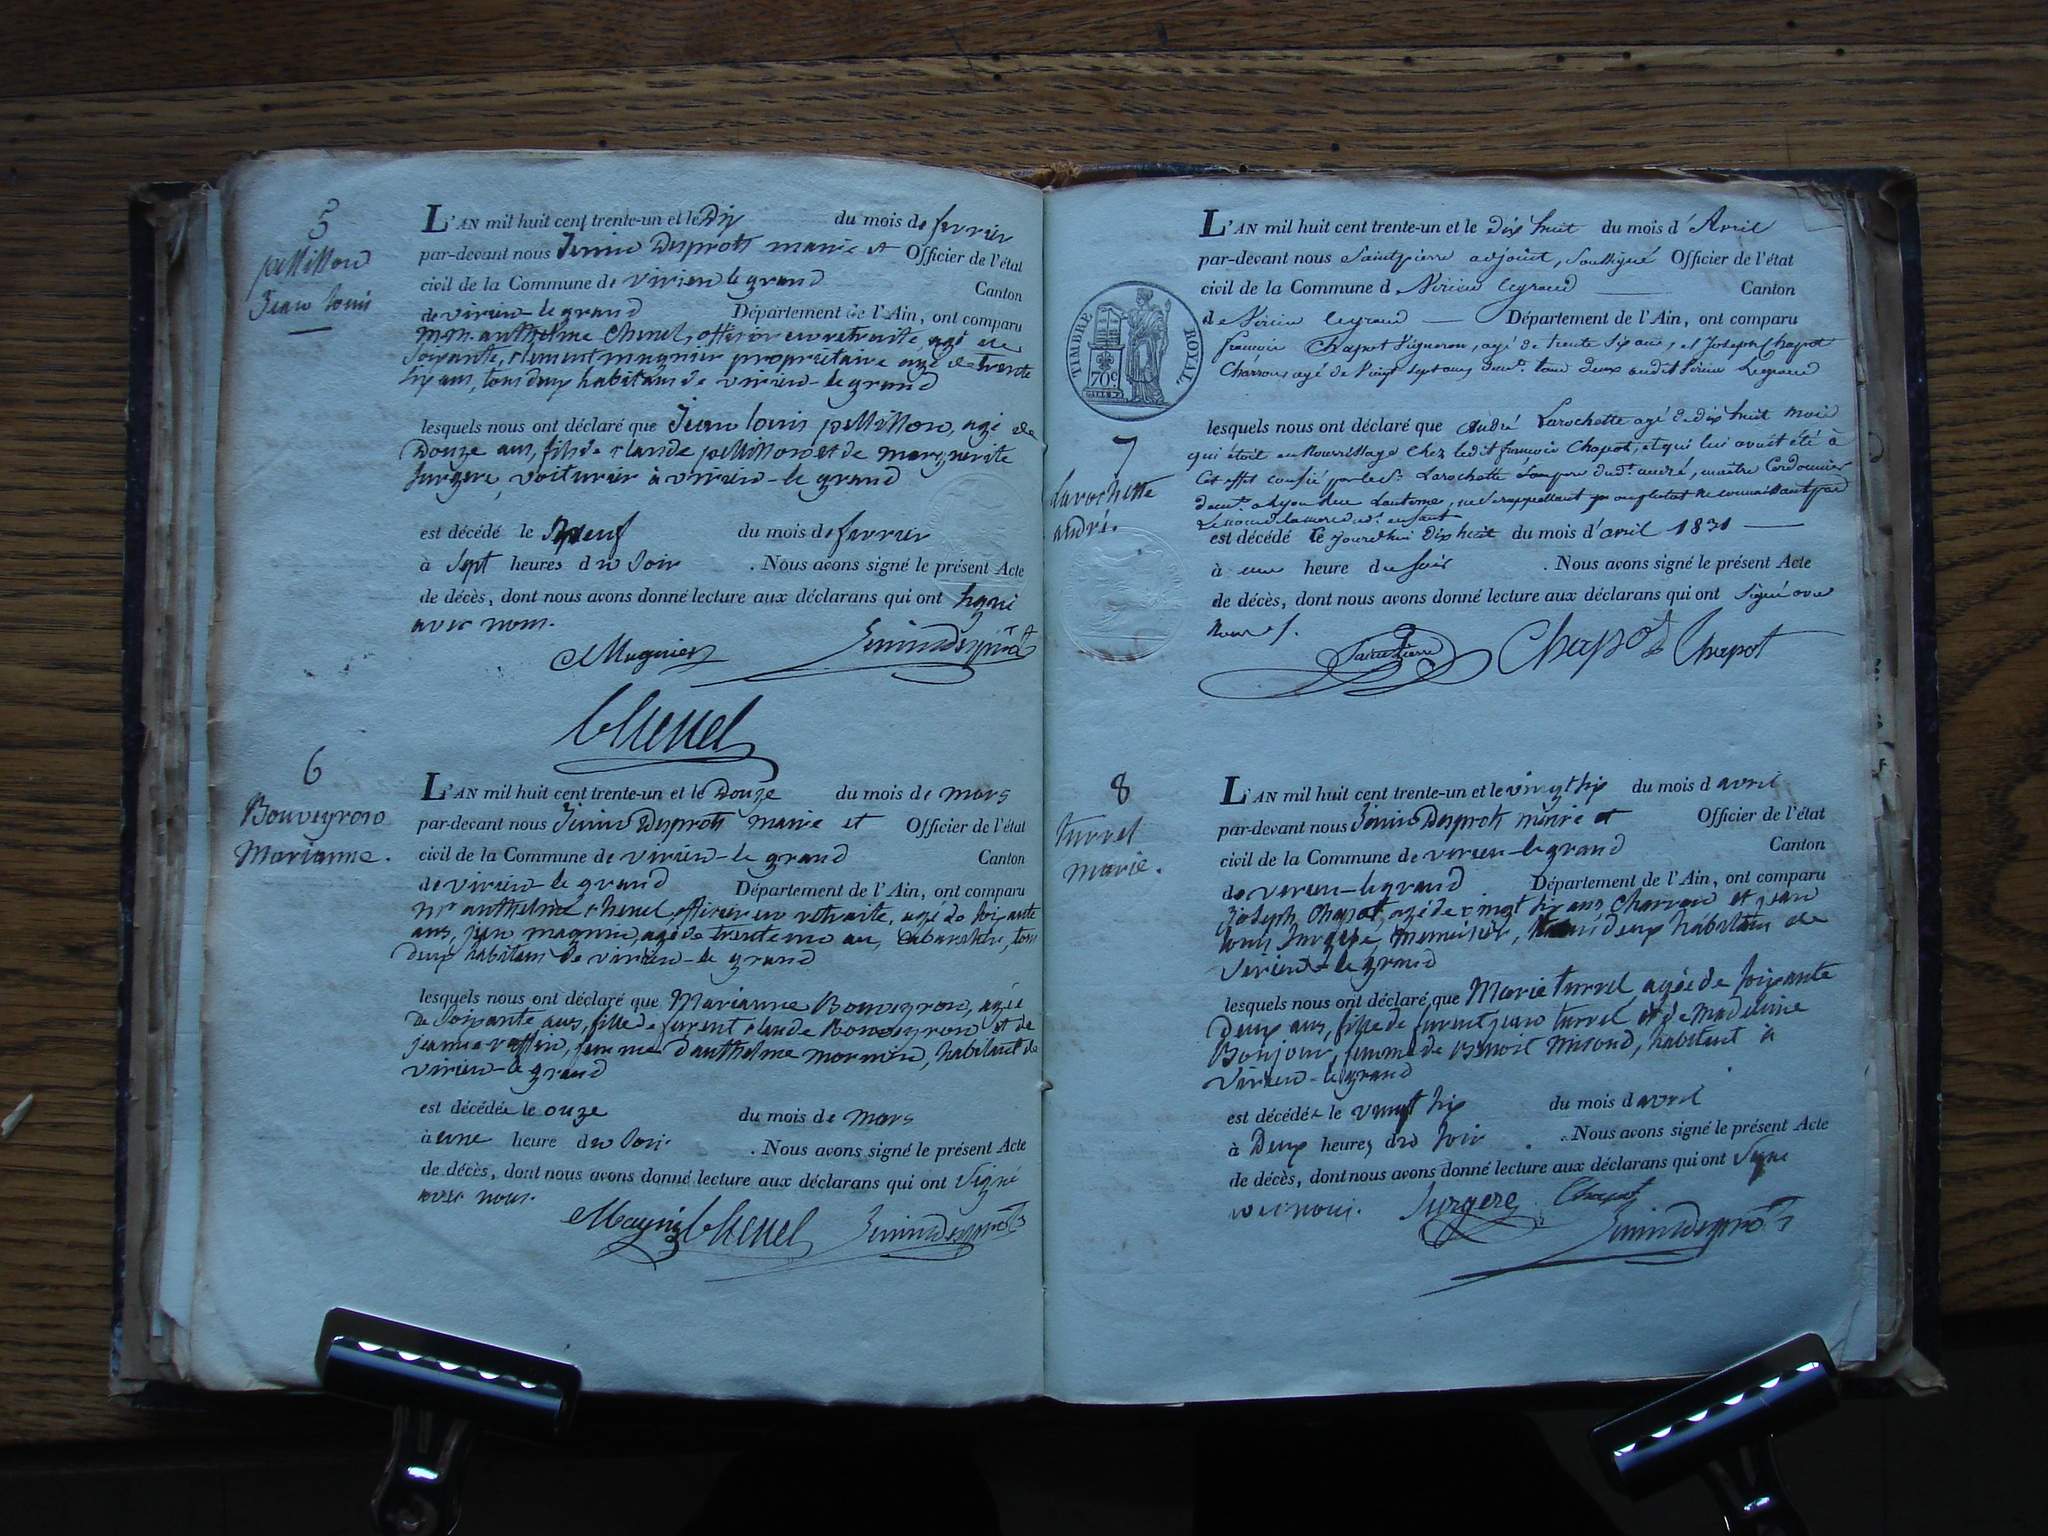 5
pellillon
Jean louis
L'AN mil huit cent trente-un et le Dix du mois de fevrier
par-devant nous Jenin Desprots maire et Officier de l'état
civil de la Commune de virieu le grand Canton
de virieu le grand Département de l'Ain, ont comparu
Mrs anthelme Chenel, officier en retraite, agé de
soixante, clement magnier proprietaire agé de trente
six ans, tous deux habitans de virieu-le grand
lesquels nous ont déclaré que Jean louis pellillon, agé de
Douze ans, fils de claude pellillon et de marguerite
surgere, voiturier à virieu-le grand
est décédé le neuf du mois de fevrier
à Sept heures du Soir . Nous avons signé le présent Acte
de décès, dont nous avons donné lecture aux déclarans qui ont signé
avec nous.
Magnier Jenindesprots
Chenel
6
Bouveyron
Marianne.
L'AN mil huit cent trente-un et le Douze du mois de mars
par-devant nous Jenin Desprots maire et Officier de l'état
civil de la Commune de virieu-le grand Canton
de virieu-le grand Département de l'Ain, ont comparu
Mr anthelme chenel officier en retraite, agé de soixante
ans, magnin, agé de trente un an, cabaretier, tous
deux habitans de virieu-le grand
lesquels nous ont déclaré que Marianne Bouveyron, agée
de soixante ans, fille de furent claude Bouveyron et de
jeanne, femme d'anthelme, habitant de
virieu-le grand
est décédée le onze du mois de mars
à une heure du soir . Nous avons signé le présent Acte
de décès, dont nous avons donné lecture aux déclarans qui ont signé
avec nous.
Magnin Chenel Jenindesprots
TIMBRE ROYAL
70c
7
Larochette
andré.
L'AN mil huit cent trente-un et le dix huit du mois d'Avril
par-devant nous Saintpierre adjoint, Soussigné Officier de l'état
civil de la Commune de Virieu legrand Canton
de Virieu legrand Département de l'Ain, ont comparu
françois Chapot Vigneron, agé de trente six ans, et Joseph Chapot
Charron, agé de vingt sept ans, demt. tous deux audit Virieu Legrand
lesquels nous ont déclaré que André Larochette agé de dix huit mois
qui étoit en Nourrissage chez ledit françois Chapot, et qui lui avoit été à
cet effet confié par le Sr. Larochette père dudt. andré, maître Cordonnier
demt. a Lyon Rue Lanterne, ne se rappellant connaissant pas
le nom de la mere dudt. enfant
est décédé le jourd'hui dix huit du mois d'avril 1831
à une heure du soir . Nous avons signé le présent Acte
de décès, dont nous avons donné lecture aux déclarans qui ont signé avec
nous.
Saintpierre Chapot Chapot
8
turrel
marie.
L'AN mil huit cent trente-un et le vingt six du mois d avril
par-devant nous Jenin Desprots maire et Officier de l'état
civil de la Commune de virieu-le grand Canton
de virieu-le grand Département de l'Ain, ont comparu
Joseph Chapot, agé de vingt six ans Charron et jean
louis Surgere, menuisier, deux habitans de
virieu-le grand
lesquels nous ont déclaré que Marie turrel agée de soixante
Deux ans, fille de furent jean turrel et de Madeleine
Bonjour, femme de Benoit, habitant à
virieu-le grand
est décédée le vingt six du mois d avril
à Deux heures du soir . Nous avons signé le présent Acte
de décès, dont nous avons donné lecture aux déclarans qui ont signé
avec nous. Surgere Chapot
Jenindesprots